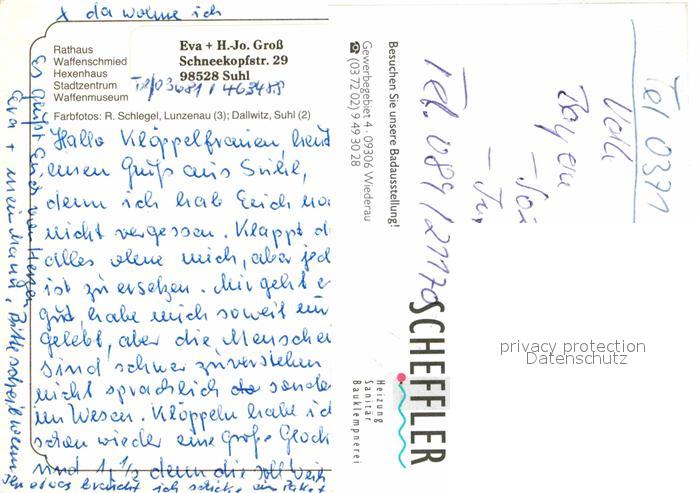 x da wohne ich
Rathaus
Waffenschmied
Hexenhaus
Stadtzentrum
Waffenmuseum
Eva + H.-Jo. Groß
Schneekopfstr. 29
98528 Suhl
Tel/03681 / 463488
Farbfotos: R. Schlegel, Lunzenau (3); Dallwitz, Suhl (2)
Hallo Klöppelfrauen, heut
einen Gruß aus Suhl,
denn ich hab Euch no
nicht vergessen. Klappt d
alles ohne mich, aber jed
ist zu ersetzen. Mir geht e
gut, habe mich soweit ein
gelebt, aber die Mensche
sind schwer zu verstehen
nicht sprachlich sonde
im Wesen. Klöppeln habe ic
schon wieder eine große Glock
sind 1 1/2 denn die soll Weih
etwas braucht ich schicke ein Paket
Es grüßt Euch von Herzen
Eva + mein Mann, Bitte schreibt wenn
Besuchen Sie unsere Badausstellung!
Gewerbegebiet 4 · 09306 Wiederau
☎ (03 72 02) 9 49 30 28
SCHEFFLER
Heizung
Sanitär
Bauklempnerei
Tel 0371
Tel. 089/21170
privacy protection
Datenschutz